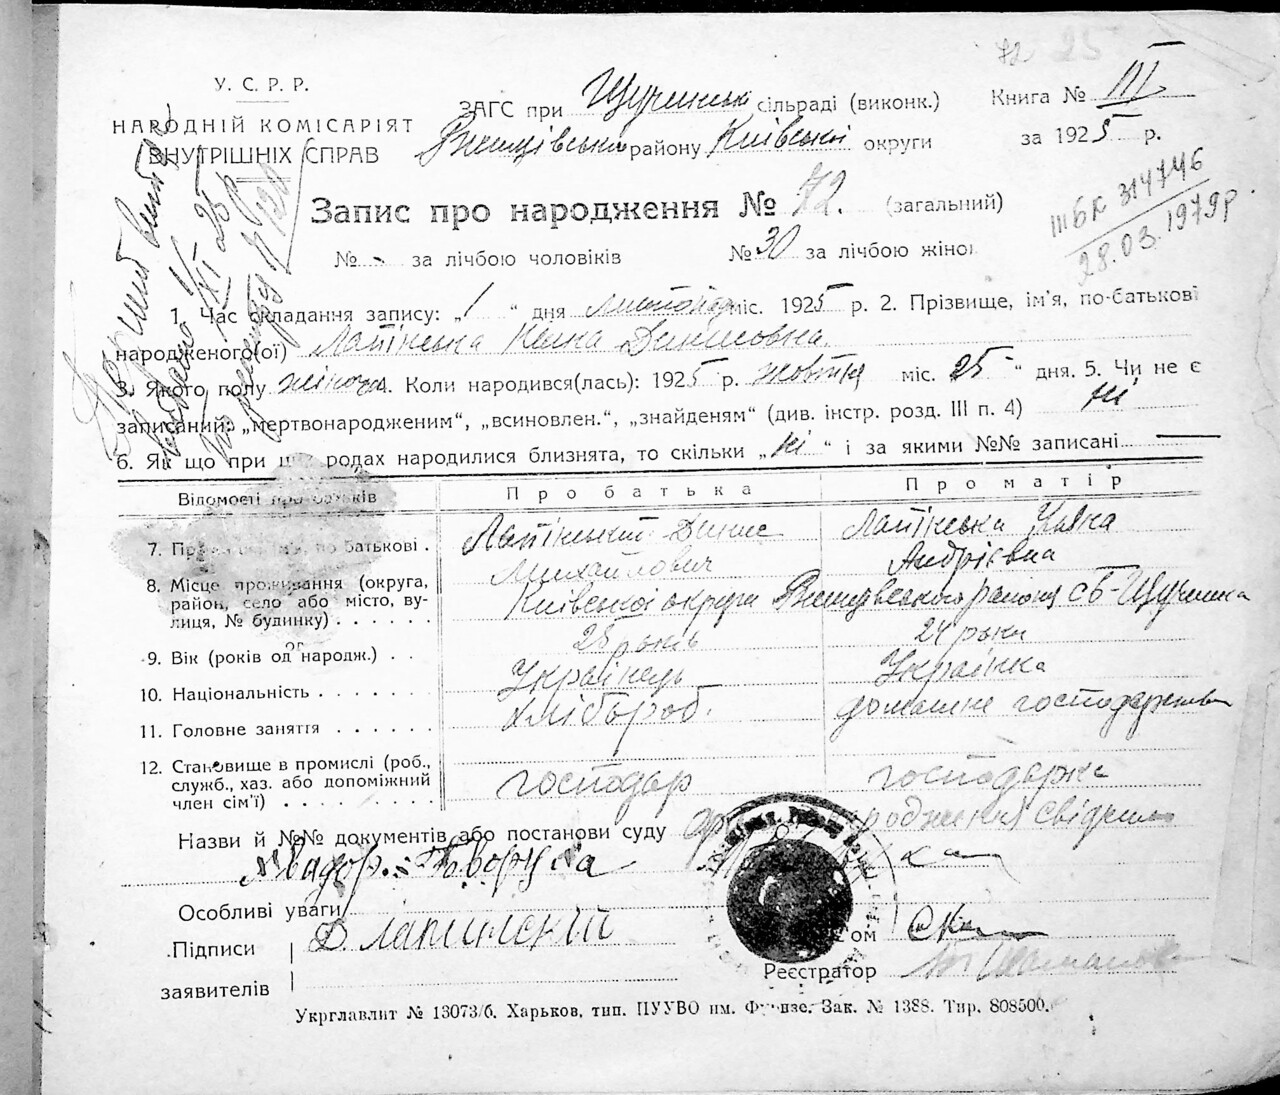 72 25
У. С. Р. Р.
НАРОДНІЙ КОМІСАРІЯТ
ВНУТРІШНІХ СПРАВ
ЗАГС при Щучинські сільраді (виконк.)
району Київської округи
Книга № III
за 1925 р.
Запис про народження № 72. (загальний)
№ - за лічбою чоловіків №30 за лічбою жінок
ІІІБК 314746
28.03.1979р.
1. Час складання запису: „1“ дня листопад міс. 1925 р. 2. Прізвище, ім'я, по-батькові
народженого(ої) Лапінська Денисовна
3. Якого полу жіноч 4. Коли народився(лась): 1925 р. жовтня міс. „25“ дня. 5. Чи не є
записаний: „мертвонародженим“, „всиновлен.“, „знайденям“ (див. інстр. розд. III п. 4) ні
6. Як що при родах народилися близнята, то скільки „ні“ і за якими №№ записані —
Відомості про батьків Про батька Про матір
7. по батькові . Лапінський Денис Лапінська
Михайлович Андрієвна
8. Місце проживання (округа,
район, село або місто, ву-
лиця, № будинку) . . . . . . Київської округи району с Щучинка
9. Вік (років од народж.) . . 25 років 24 роки
10. Національність . . . . . . Українець Українка
11. Головне заняття . . . . . . хлібороб. домашнє господарство
12. Становище в промислі (роб.,
служб., хаз. або допоміжний
член сім'ї) . . . . . . . . . . господар господарка
Назви й №№ документів або постанови суду
Особливі уваги
Підписи Д. Лапинский
заявителів
Реєстратор
Укрглавлит № 13073/б. Харьков, тип. ПУУВО им. Фрунзе. Зак. № 1388. Тир. 808500.